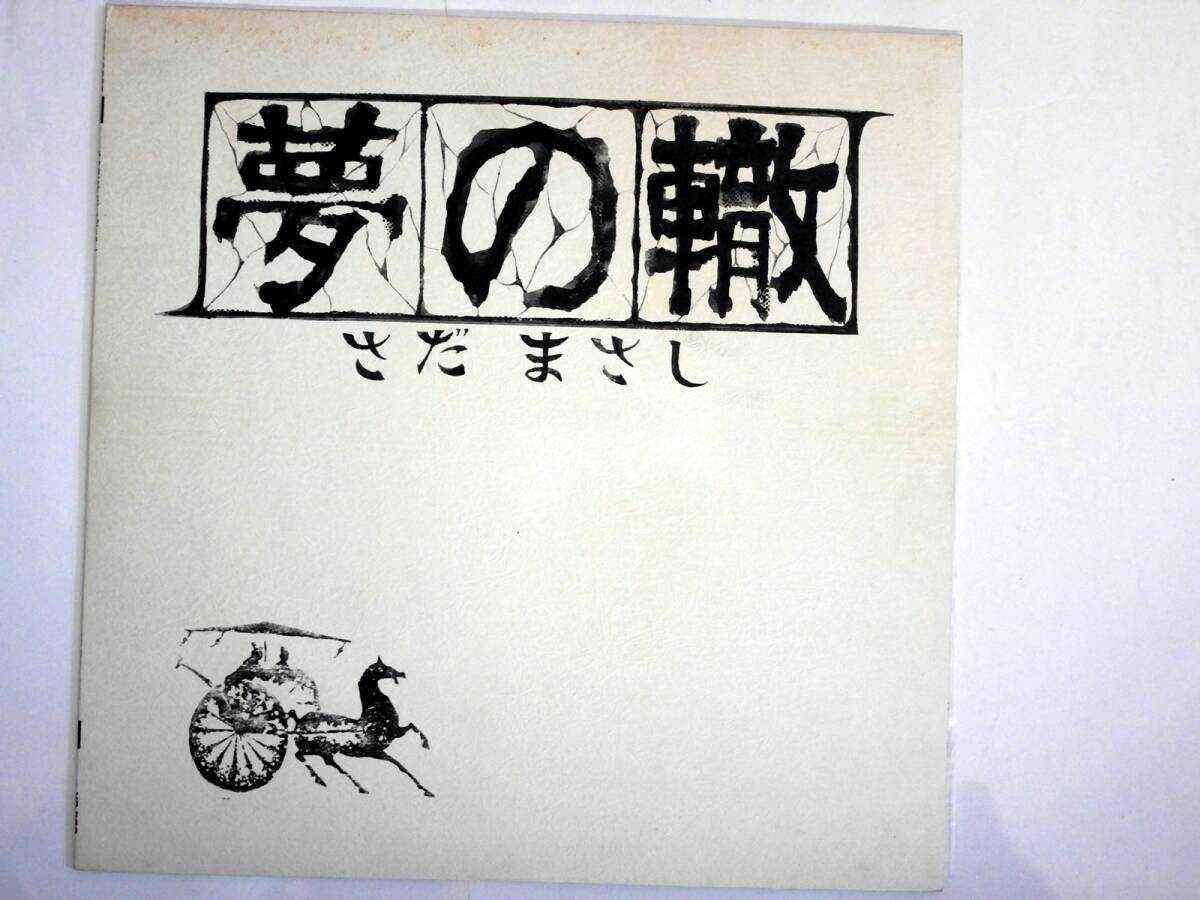 夢の轍
さだ まさし